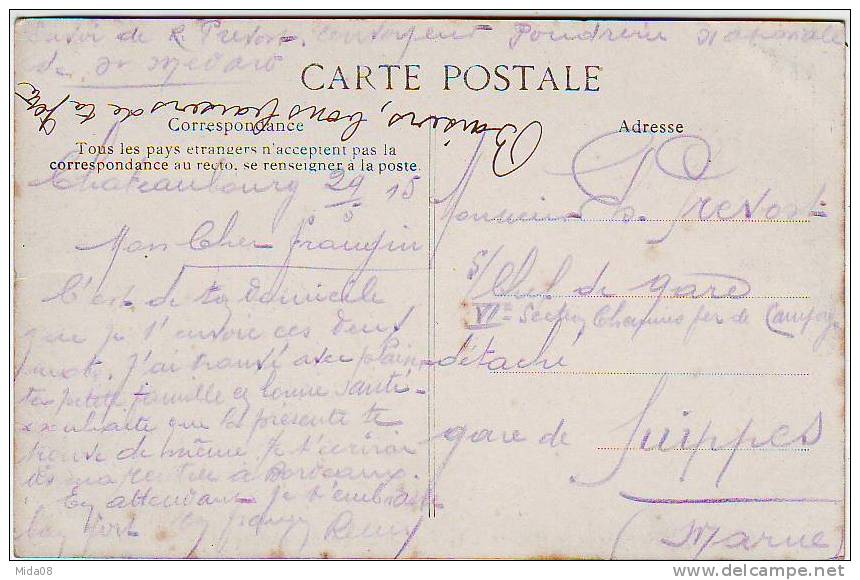 Envoi de R. Prevost, Poudrerie Nationale
de St Médard
CARTE POSTALE
Baisers, bons baisers de ta
Correspondance
Adresse
Tous les pays étrangers n'acceptent pas la
correspondance au recto, se renseigner à la poste
Chateaubourg 29 15
Mon Cher Frangin
C'est de ton domicile
que je t'envoie ces deux
mots. J'ai trouvé avec plaisir
ta petite famille en bonne santé
souhaite que la présente te
trouve de même. Je t'écrirai
dès ma rentrée à Bordeaux.
En attendant je t'embrasse
bien fort Remy
Monsieur Prevost
S/ Chef de gare
VIe Section Chemins fer de Campagne
détaché
gare de Suippes
(Marne)
Mida08
www.delcampe.net